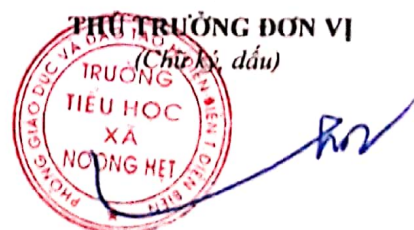 THỦ TRƯỞNG ĐƠN VỊ
(Chữ ký, dấu)
PHÒNG GIÁO DỤC VÀ ĐÀO TẠO H. ĐIỆN BIÊN T. ĐIỆN BIÊN
TRƯỜNG
TIỂU HỌC
XÃ
NOONG HẸT